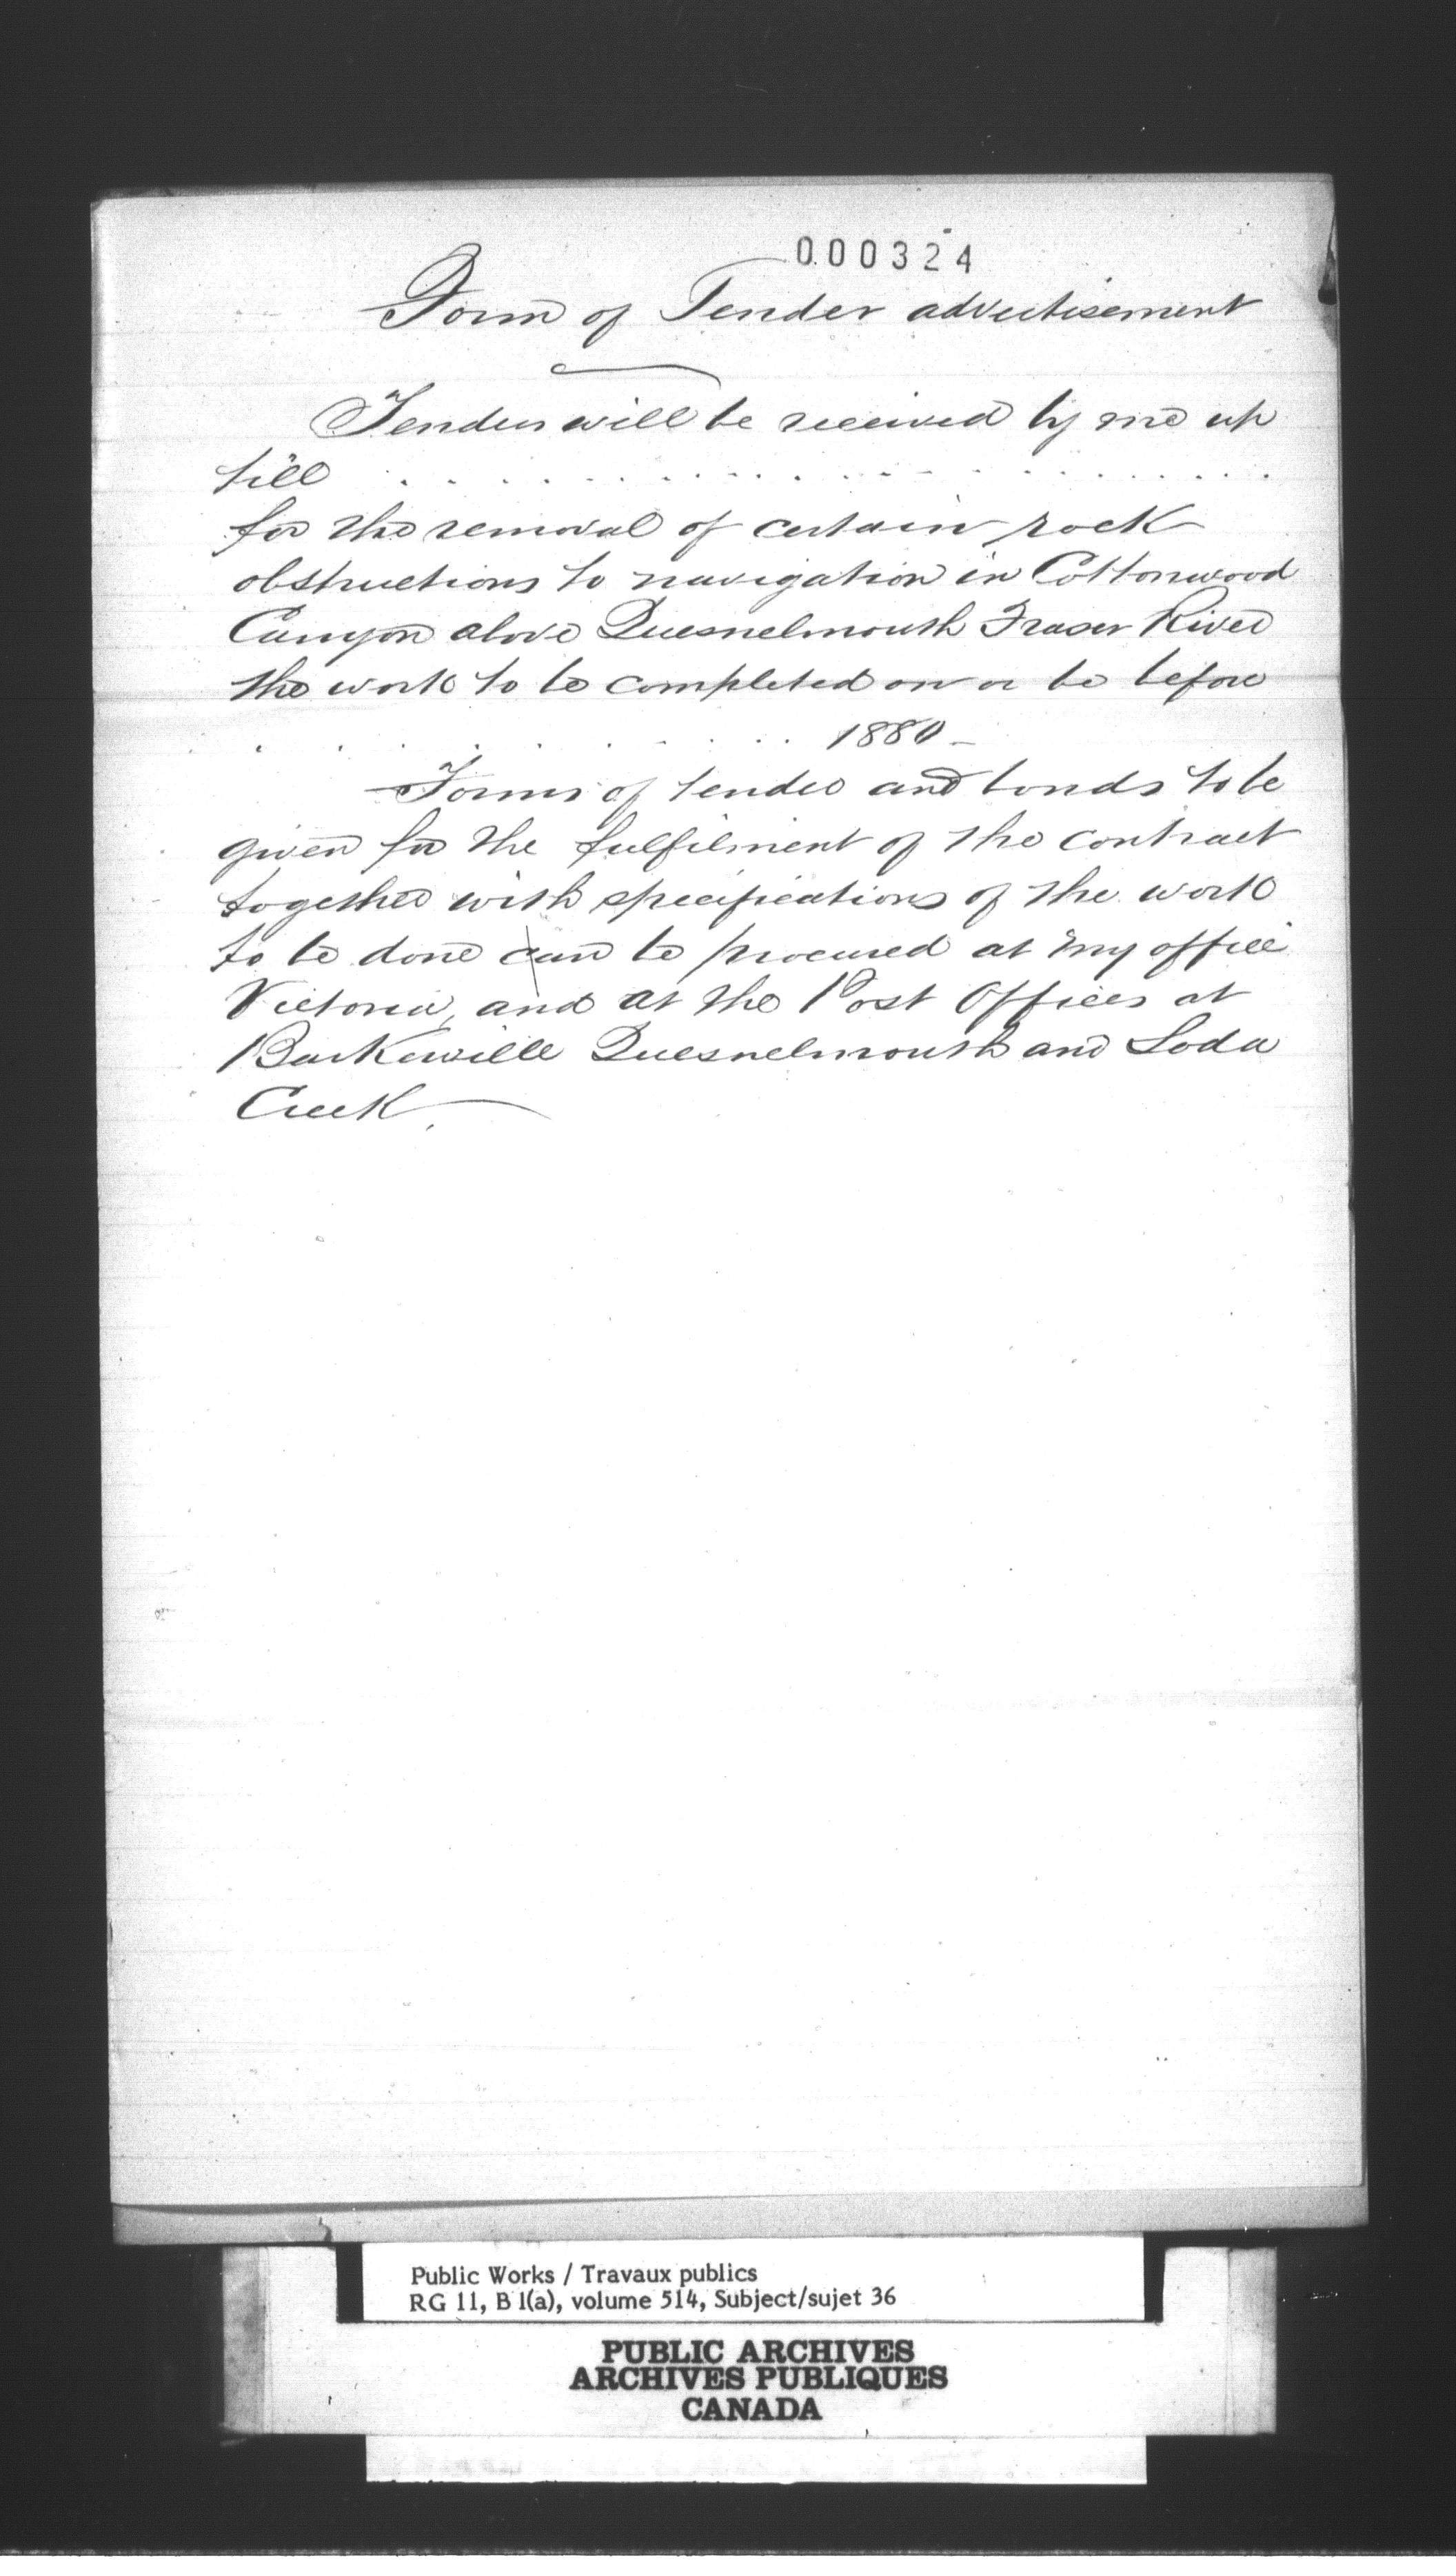 000324
Form of Tender advertisement
Tenders will be received by me up
till . . . . . . . . . . . . . . . . . . . .
for the removal of certain rock
obstructions to navigation in Cottonwood
Canyon above Quesnelmouth Fraser River
the work to be completed on or be before
. . . . . . . . . . 1880 -
Forms of tender and bonds to be
given for the fulfilment of the contract
together with specifications of the work
to be done can be procured at my office
Victoria, and at the Post Offices at
Barkerville Quesnelmouth and Soda
Creek.
Public Works / Travaux publics
RG 11, B 1(a), volume 514, Subject/sujet 36
PUBLIC ARCHIVES
ARCHIVES PUBLIQUES
CANADA